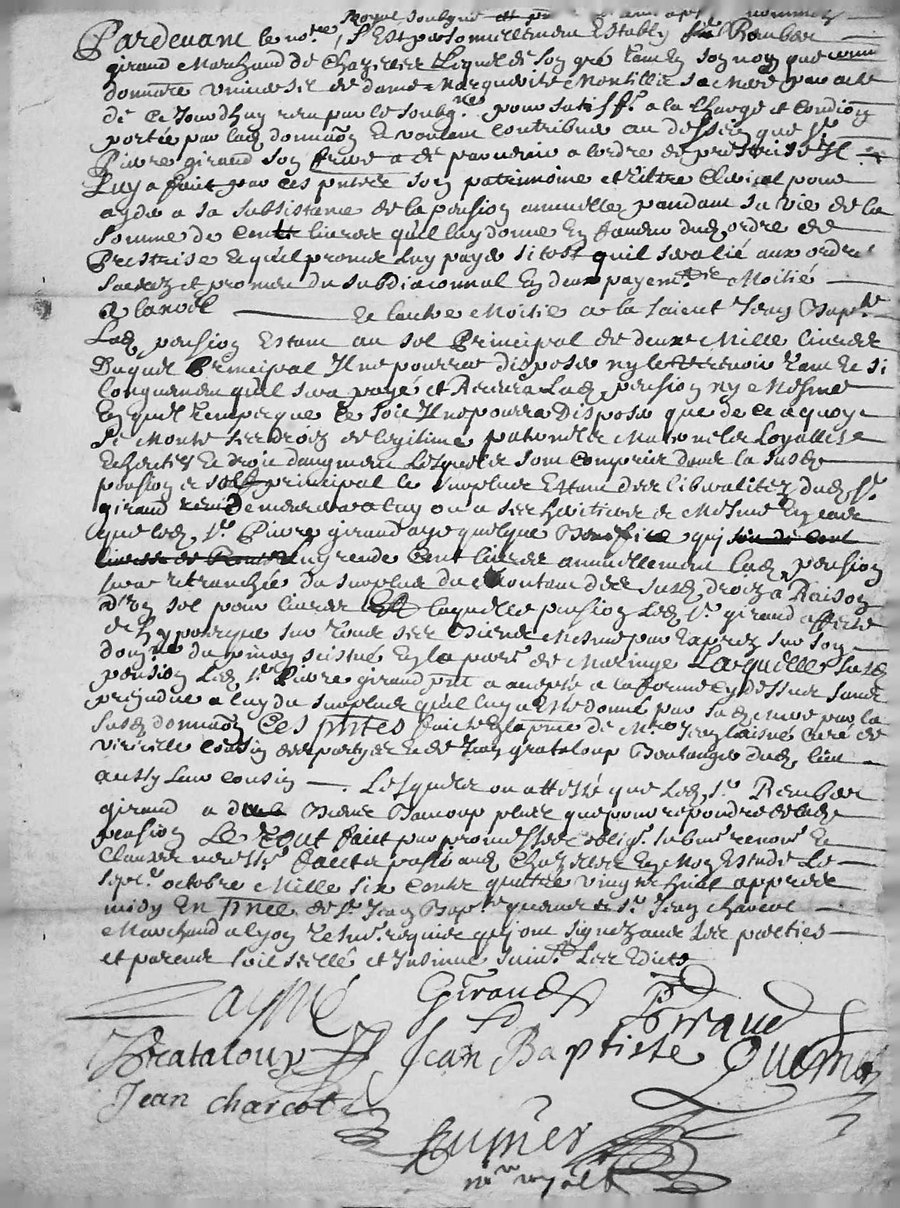 Royal soubsigné et
Pardevant le no.re S'Est personnellement Estably Rember
giraud Marchand de Chazelles Lequel de son gré tant En son nom que comme
donn.re universel de dame Marguerite Montillie sa Mere par acte
de Ce Jourdhuy receu par le soubg.né pour satisff.e a la charge et condion
portée par lad donnaon Et voulant contribuer au dessein que s.r
Pierre giraud son frere a de parvenir a lordre de prestrise Il
Luy a fait par ces pntes son patrimoine et tiltre Clerical pour
ayder a sa subsistance de la pension annuelle pendant sa vie de la
somme de Cent livres qu'il luy donne En faveur dud ordre de
Prestrise Et qu'il promet luy payer sitost quil sera lié aux ordres
sacrez et promeu du subdiaconnat En deux payem.ts Moitié
a lanoel Et lautre Moitié a la saint Jean Bap.te
Lad pension Estant au sol Principal de deux Mille livres
Duquel Principal Il ne pourra disposer ny tant Et si
Longuement qu'il sera payé et Lad pension ny Mesme
En quel temps que Ce soit Il ne pourra Disposer que de Ce a quoy
se Monte ses droits de legitime paternelle Maternelle
Et droit daugment Lesquels sont compris dans la susd
pension et sol principal le surplus Estant des liberalitez dud s.r
giraud demeurera a luy ou a ses heritiers Et Mesme En cas
que led. s.r Pierre giraud aye quelque Benefice qui
rende Cent livres annuellement lad pension
sera retranchée du surplus du Montant des susd droits a Raison
d'un sol pour livre laquelle pension Led s.r giraud affecte
Et hypoteque sur tous ses Biens Mesme par Exprez sur son
dom.ne du pinay scittué En la par.se de Maringe Laquelle susd
pension Led s.r Pierre giraud pnt a accepté a la forme cy dessus sans
prejudice a luy du surplus qu'il luy a Esté donné par sad Mere par la
susd donnaon Ces pntes faictes En la pnce de M.re Jean laisné Curé de
viricelle cousin des partyes Et de Jean grataloup Boulanger dud lieu
aussy leur cousin Lesquels ont attesté que Led s.r Rember
giraud a des Biens Beaucoup plus que pour repondre de lad
pension Le tout fait par promesses oblig.s submis.s renonc.s Et
Clauses necess.es fait et passé aud Chazelles En Mon Estude Le
sept.e octobre Mille six Cents quattre vingts huit appres
midy En pnce de s.r Jean Bap.te Et s.r Jean charcot
Marchand a lyon tesm.s requis qui ont signez avec les parties
et par eux soit scellé et Insinué suiv.t Les Edits
Giraud
Giraud
Grataloup
Jean Baptiste
Jean Charcot
no.re royal